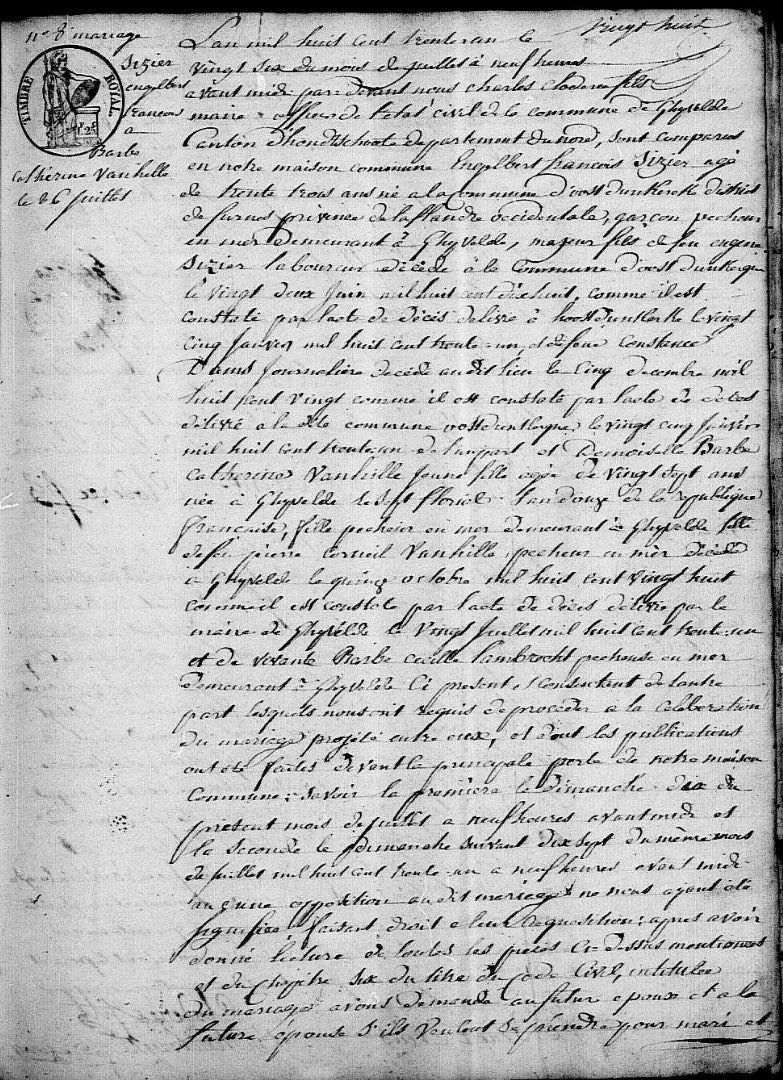 vingt huit
n° 8 mariage
Sizier
engelbert
francois
a
Barbe
catherine Vanhille
le 26 Juillet
TIMBRE ROYAL
L'an mil huit cent trente un le
vingt six du mois de juillet à neuf heures
avant midi par devant nous charles
maire officier de l'etat civil de la commune de Ghyvelde
Canton d'hondtschoote departement du nord, sont comparus
en notre maison commune Engelbert francois Sizier agé
de trente trois ans né a la commune d'oost dunkerke district
de furnes province de la flandre occidentale, garçon pecheur
en mer demeurant à Ghyvelde, majeur fils de feu eugene
Sizier laboureur décédé à la Commune d'oost dunkerque
le vingt deux Juin mil huit cent dix huit, comme il est
constaté par l'acte de décès delivré à hoost dunkerke le vingt
cinq Janvier mil huit cent trente-un, et de feue Constance
Journaliere decedé audit lieu le Cinq decembre mil
huit cent vingt comme il est constaté par l'acte de décès
délivré a la dite commune oost dunkerque le vingt cinq Janvier
mil huit cent trente un de l'une part et Demoiselle Barbe
Catherine Vanhille Jeune fille agée de Vingt Sept ans
née à Ghyvelde le sept floréal l'an douze de la republique
française, fille pecheur en mer demeurant à Ghyvelde fille
de feu pierre Corneil Vanhille, pecheur en mer décédé
a Ghyvelde le quinze octobre mil huit cent vingt huit
comme il est constaté par l'acte de décès délivré par le
maire de Ghyvelde le Vingt Juillet mil huit cent trente-un
et de vivante Barbe Cecille Lambrecht pecheuse en mer
demeurant à Ghyvelde Ci present et Consentent de l'autre
part lesquels nous ont requis de procéder a la Celebration
du mariage projeté entre eux, et dont les publications
ont été faites devant la principale porte de notre maison
Commune; savoir la première le dimanche dix du
présent mois de juillet a neuf heures avant midi et
la Seconde le dimanche suivant dix sept du même mois
de juillet mil huit cent trente-un a neuf heures avant midi
aucune opposition audit mariage ne nous ayant été
signifiée faisant droit a leur requisition; apres avoir
donné lecture de toutes les pièces Ci-dessus mentionnés
et du Chapitre Six du titre du Code Civil, intitulée
du mariage avons demandé au futur epoux et a la
future épouse s'ils veulent se prendre pour mari et